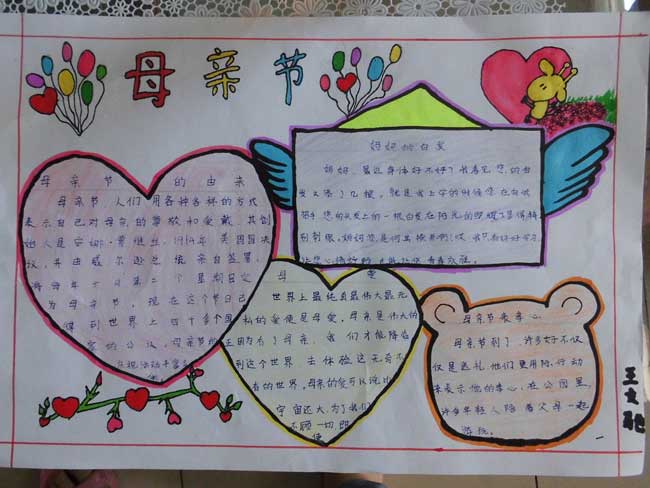 母亲节
母亲节的由来
母亲节,人们用各种各样的方式
表示自己对母亲的尊敬和爱戴,其创
始人是安娜·贾维丝,1914年,美国国会决
议,并由威尔逊总统亲自签署,
将每年五月第二个星期日定
为母亲节,现在这个节日已
得到世界上四十多个国
家的公认,母亲节的
庆祝活动丰富多
妈妈的白发
妈妈,最近身体好不好?我看见您的白
发又添了几根,就是我上学的时候您在白
您的头发上的一根白发在阳光的照耀下显得特
别刺眼,妈妈
母爱
世界上最纯真最伟大最无
私的爱便是母爱,母亲是伟大的
因为有了母亲,我们才能降临
到这个世界,去体验这无奇不
有的世界,母亲的爱可以说比
宇宙还大,为了我们
不顾一切即
使
母亲节表孝心
母亲节到了,许多女子不仅
仅是送礼,他们更用行动
来表示他的孝心,在公园里
许多年轻人陪着父母一起
游玩。
王文